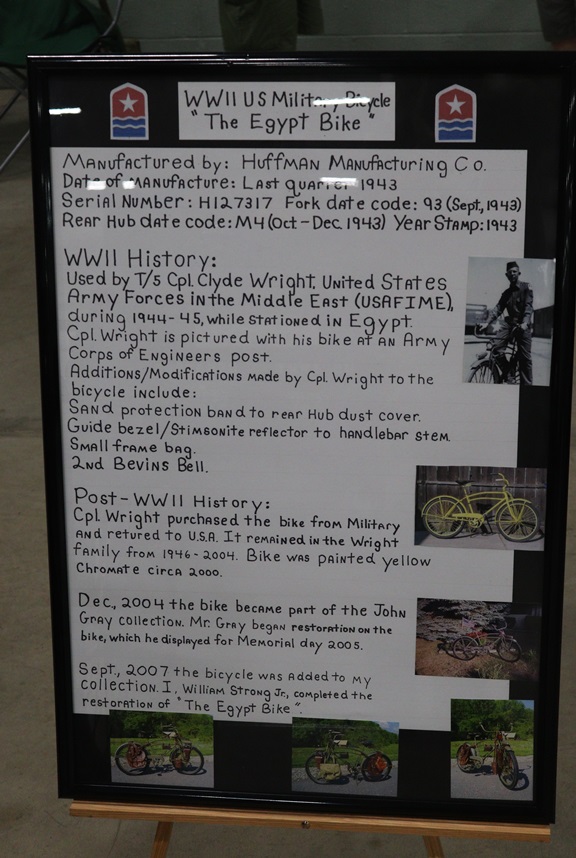 WWII US Military Bicycle
"The Egypt Bike"
Manufactured by: Huffman Manufacturing Co.
Date of manufacture: Last quarter 1943
Serial Number: H127317 Fork date code: 93 (Sept, 1943)
Rear Hub date code: M4 (Oct-Dec. 1943) Year Stamp: 1943
WWII History:
Used by T/5 Cpl. Clyde Wright. United States
Army Forces in the Middle East (USAFIME),
during 1944-45, while stationed in Egypt.
Cpl. Wright is pictured with his bike at an Army
Corps of Engineers post.
Additions/Modifications made by Cpl. Wright to the
bicycle include:
Sand protection band to rear Hub dust cover.
Guide bezel/Stimsonite reflector to handlebar stem.
Small frame bag.
2nd Bevins Bell.
Post-WWII History:
Cpl. Wright purchased the bike from Military
and retured to U.S.A. It remained in the Wright
family from 1946-2004. Bike was painted yellow
Chromate circa 2000.
Dec., 2004 the bike became part of the John
Gray collection. Mr. Gray began restoration on the
bike, which he displayed for Memorial day 2005.
Sept., 2007 the bicycle was added to my
collection. I, William Strong Jr., completed the
restoration of "The Egypt Bike".